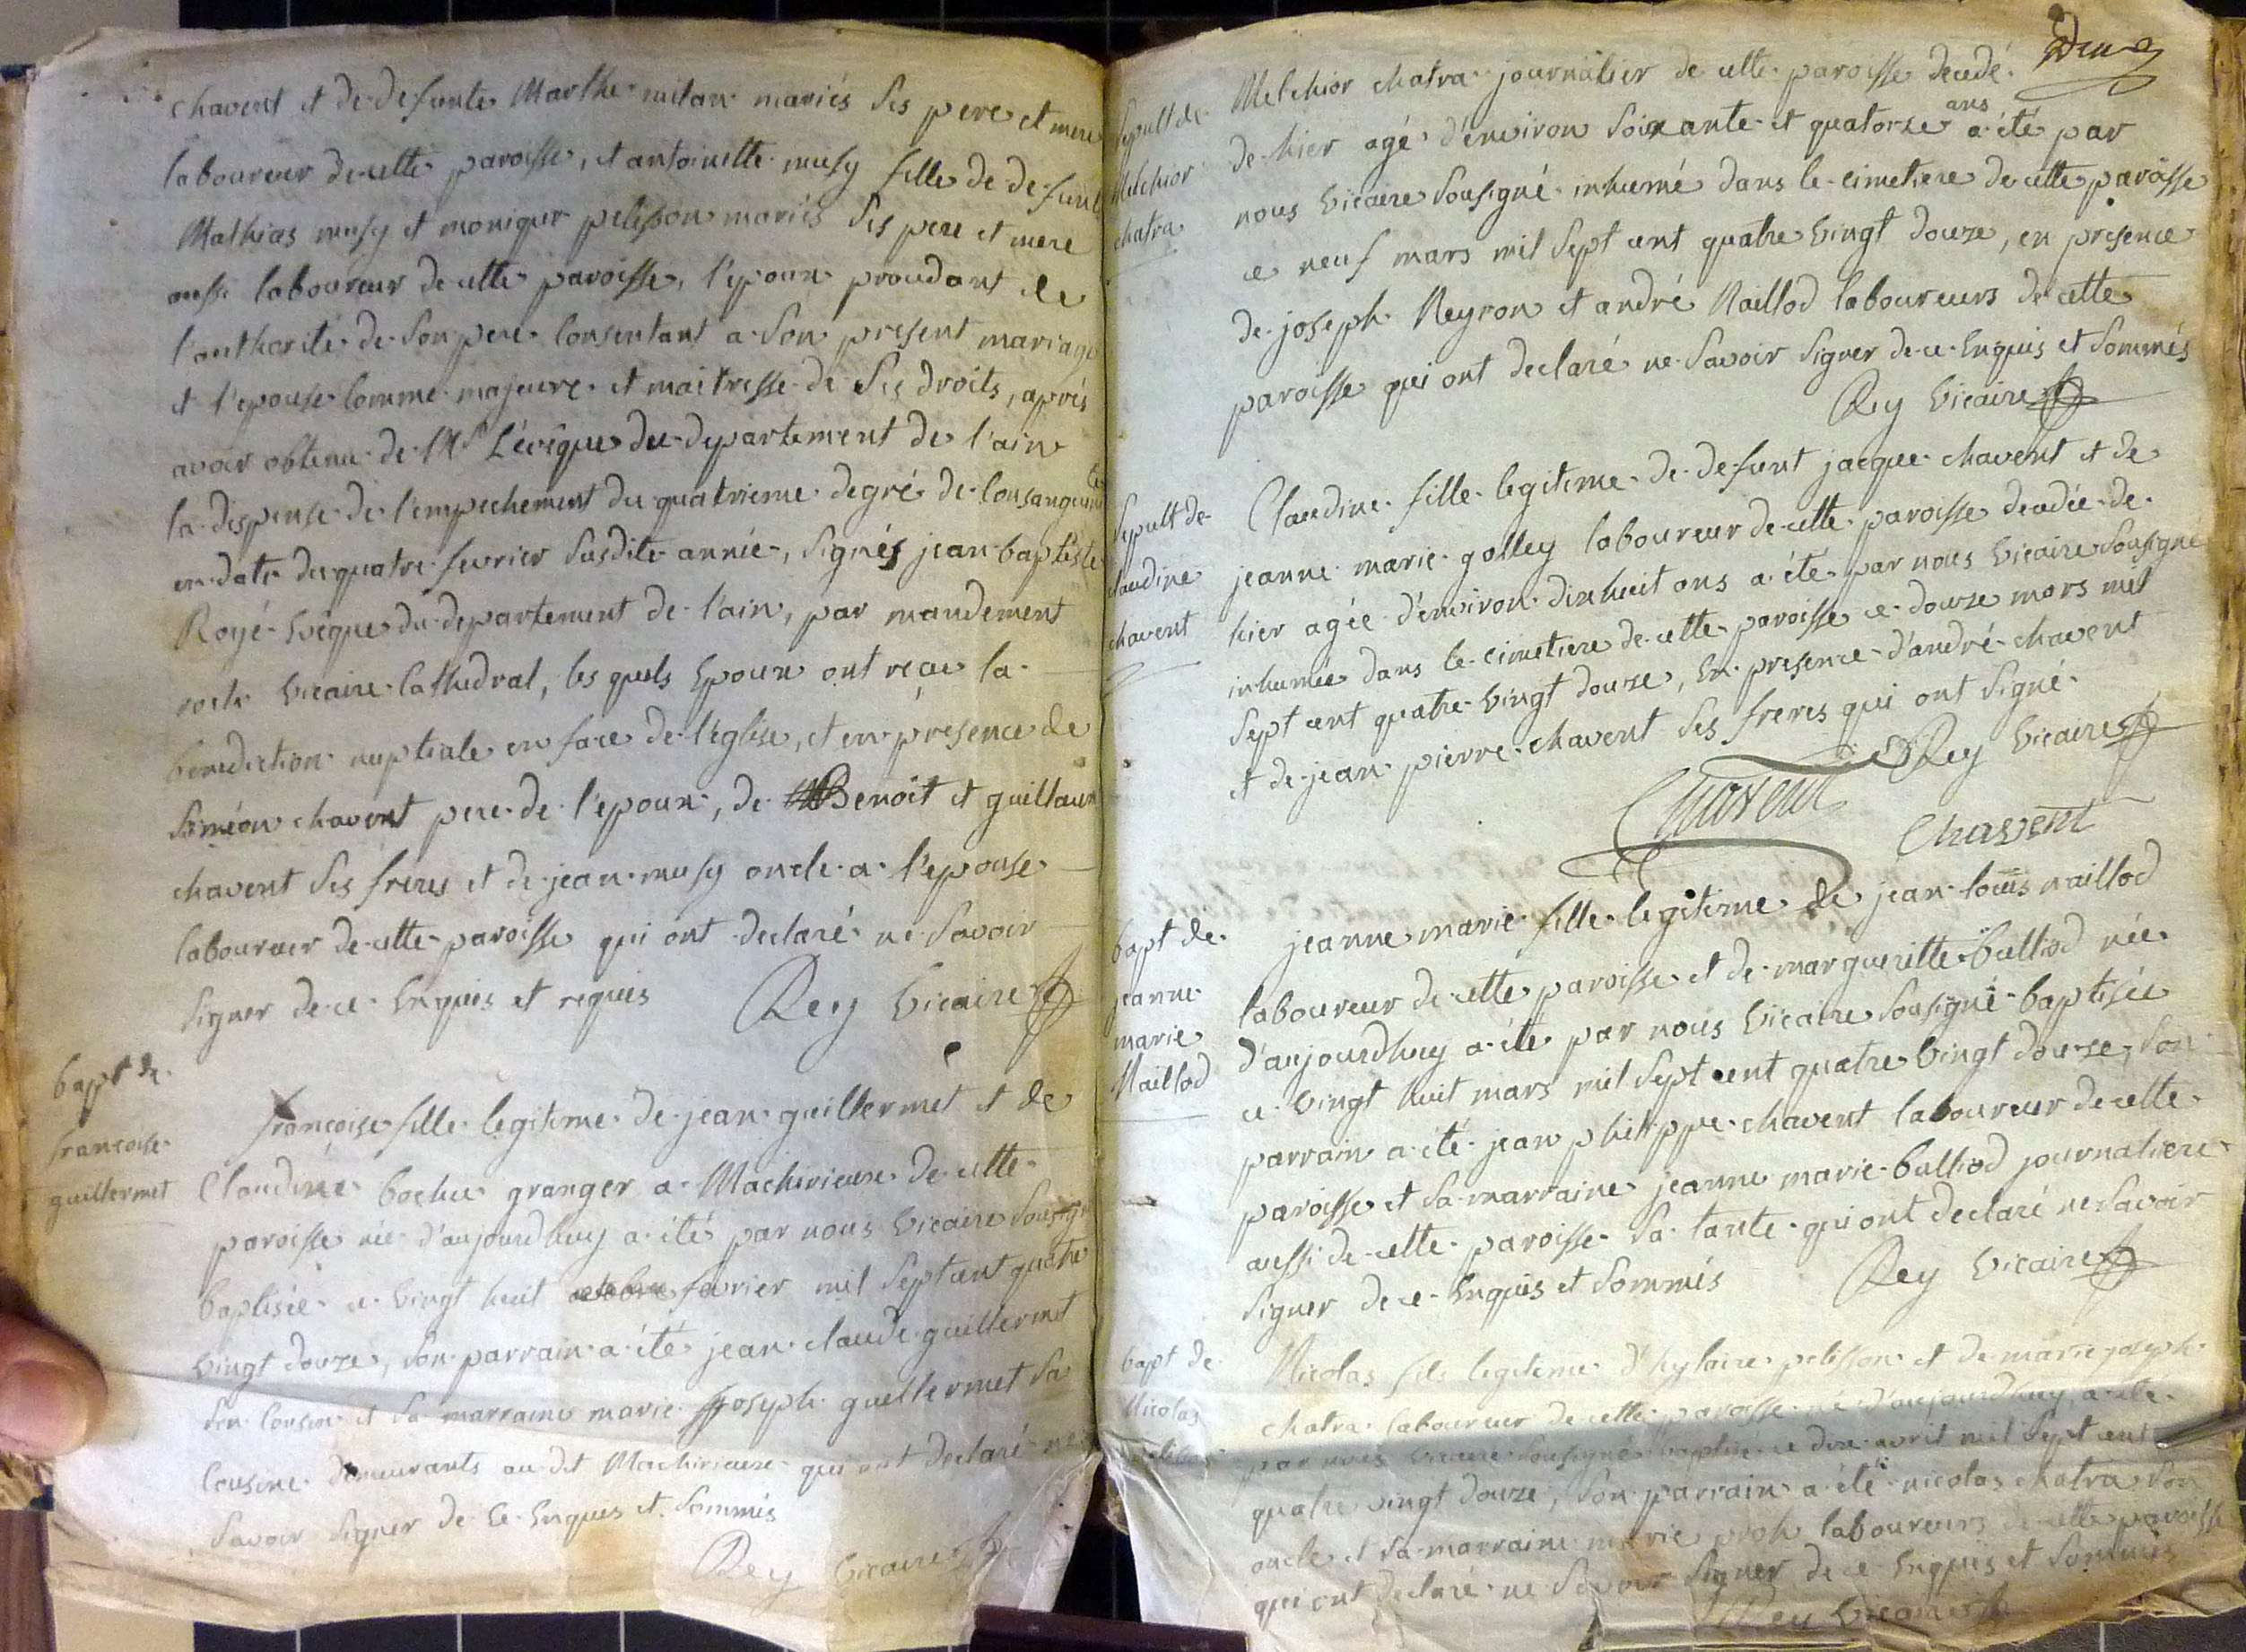 chavent et de defunte Marthe milan mariés ses pere et mere
laboureur de cette paroisse, et antoinette musy fille de defunt
Mathias musy et monique pelisson mariés ses pere et mere
aussi laboureur de cette paroisse, l'epoux procedant de
l'authorité de son pere consentant a son present mariage
et l'epouse comme majeure et maitresse de ses droits, après
avoir obtenu de Mr L'évêque du departement de l'ain
la dispense de l'empechement du quatrieme degré de consanguinité
en date du quatre fevrier susdite année, signés jean baptiste
Royé evêque du departement de l'ain, par mandement
vicaire cathedral, les quels epoux ont reçu la
benediction nuptiale en face de l'eglise, et en présence de
Siméon chavent pere de l'epoux, de Benoit et guillaume
chavent ses freres et de jean musy oncle a l'epouse
laboureur de cette paroisse qui ont declaré ne savoir
signer de ce enquis et requis Rey vicaire
bapt de
francoise
guillermet
françoise fille legitime de jean guillermet et de
Claudine bochu granger a Machirieux de cette
paroisse née d'aujourdhuy a été par nous vicaire sousigné
baptisée ce vingt huit fevrier mil sept cent quatre
vingt douze, son parrain a été jean claude guillermet
son cousin et sa marraine marie joseph guillermet sa
cousine demeurants au dit Machirieux qui ont declaré ne
savoir signer de ce enquis et sommés
Rey vicaire
sepult de
Melchior
chatra
Melchior chatra journalier de cette paroisse decedé
de hier agé d'environ soixante et quatorze ans a été par
nous vicaire sousigné inhumé dans le cimetiere de cette paroisse
ce neuf mars mil sept cent quatre vingt douze, en presence
de joseph Neyron et andré Naillod laboureurs de cette
paroisse qui ont declaré ne savoir signer de ce enquis et sommés
Rey vicaire
sepult de
claudine
chavent
Claudine fille legitime de defunt jacque chavent et de
jeanne marie golley laboureur de cette paroisse decedée de
hier agée d'environ dixhuit ans a été par nous vicaire sousigné
inhumée dans le cimetiere de cette paroisse ce douze mars mil
sept cent quatre vingt douze, en presence d'andré chavent
et de jean pierre chavent ses freres qui ont signé
Rey vicaire
Chavent
Chavent
bapt de
jeanne
marie
Naillod
jeanne marie fille legitime de jean louis naillod
laboureur de cette paroisse et de marguerite bulliod née
d'aujourdhuy a été par nous vicaire sousigné baptisée
ce vingt huit mars mil sept cent quatre vingt douze, son
parrain a été jean philippe chavent laboureur de cette
paroisse et sa marraine jeanne marie bulliod journaliere
aussi de cette paroisse sa tante qui ont declaré ne savoir
signer de ce enquis et sommés Rey vicaire
bapt de
Nicolas
pelisson
Nicolas fils legitime d'hylaire pelisson et de marie joseph
chatra laboureur de cette paroisse né d'aujourdhuy, a été
par nous vicaire sousigné baptisé ce dix avril mil sept cent
quatre vingt douze, son parrain a été nicolas chatra son
oncle et sa marraine marie laboureurs de cette paroisse
qui ont declaré ne savoir signer de ce enquis et sommés
Rey vicaire